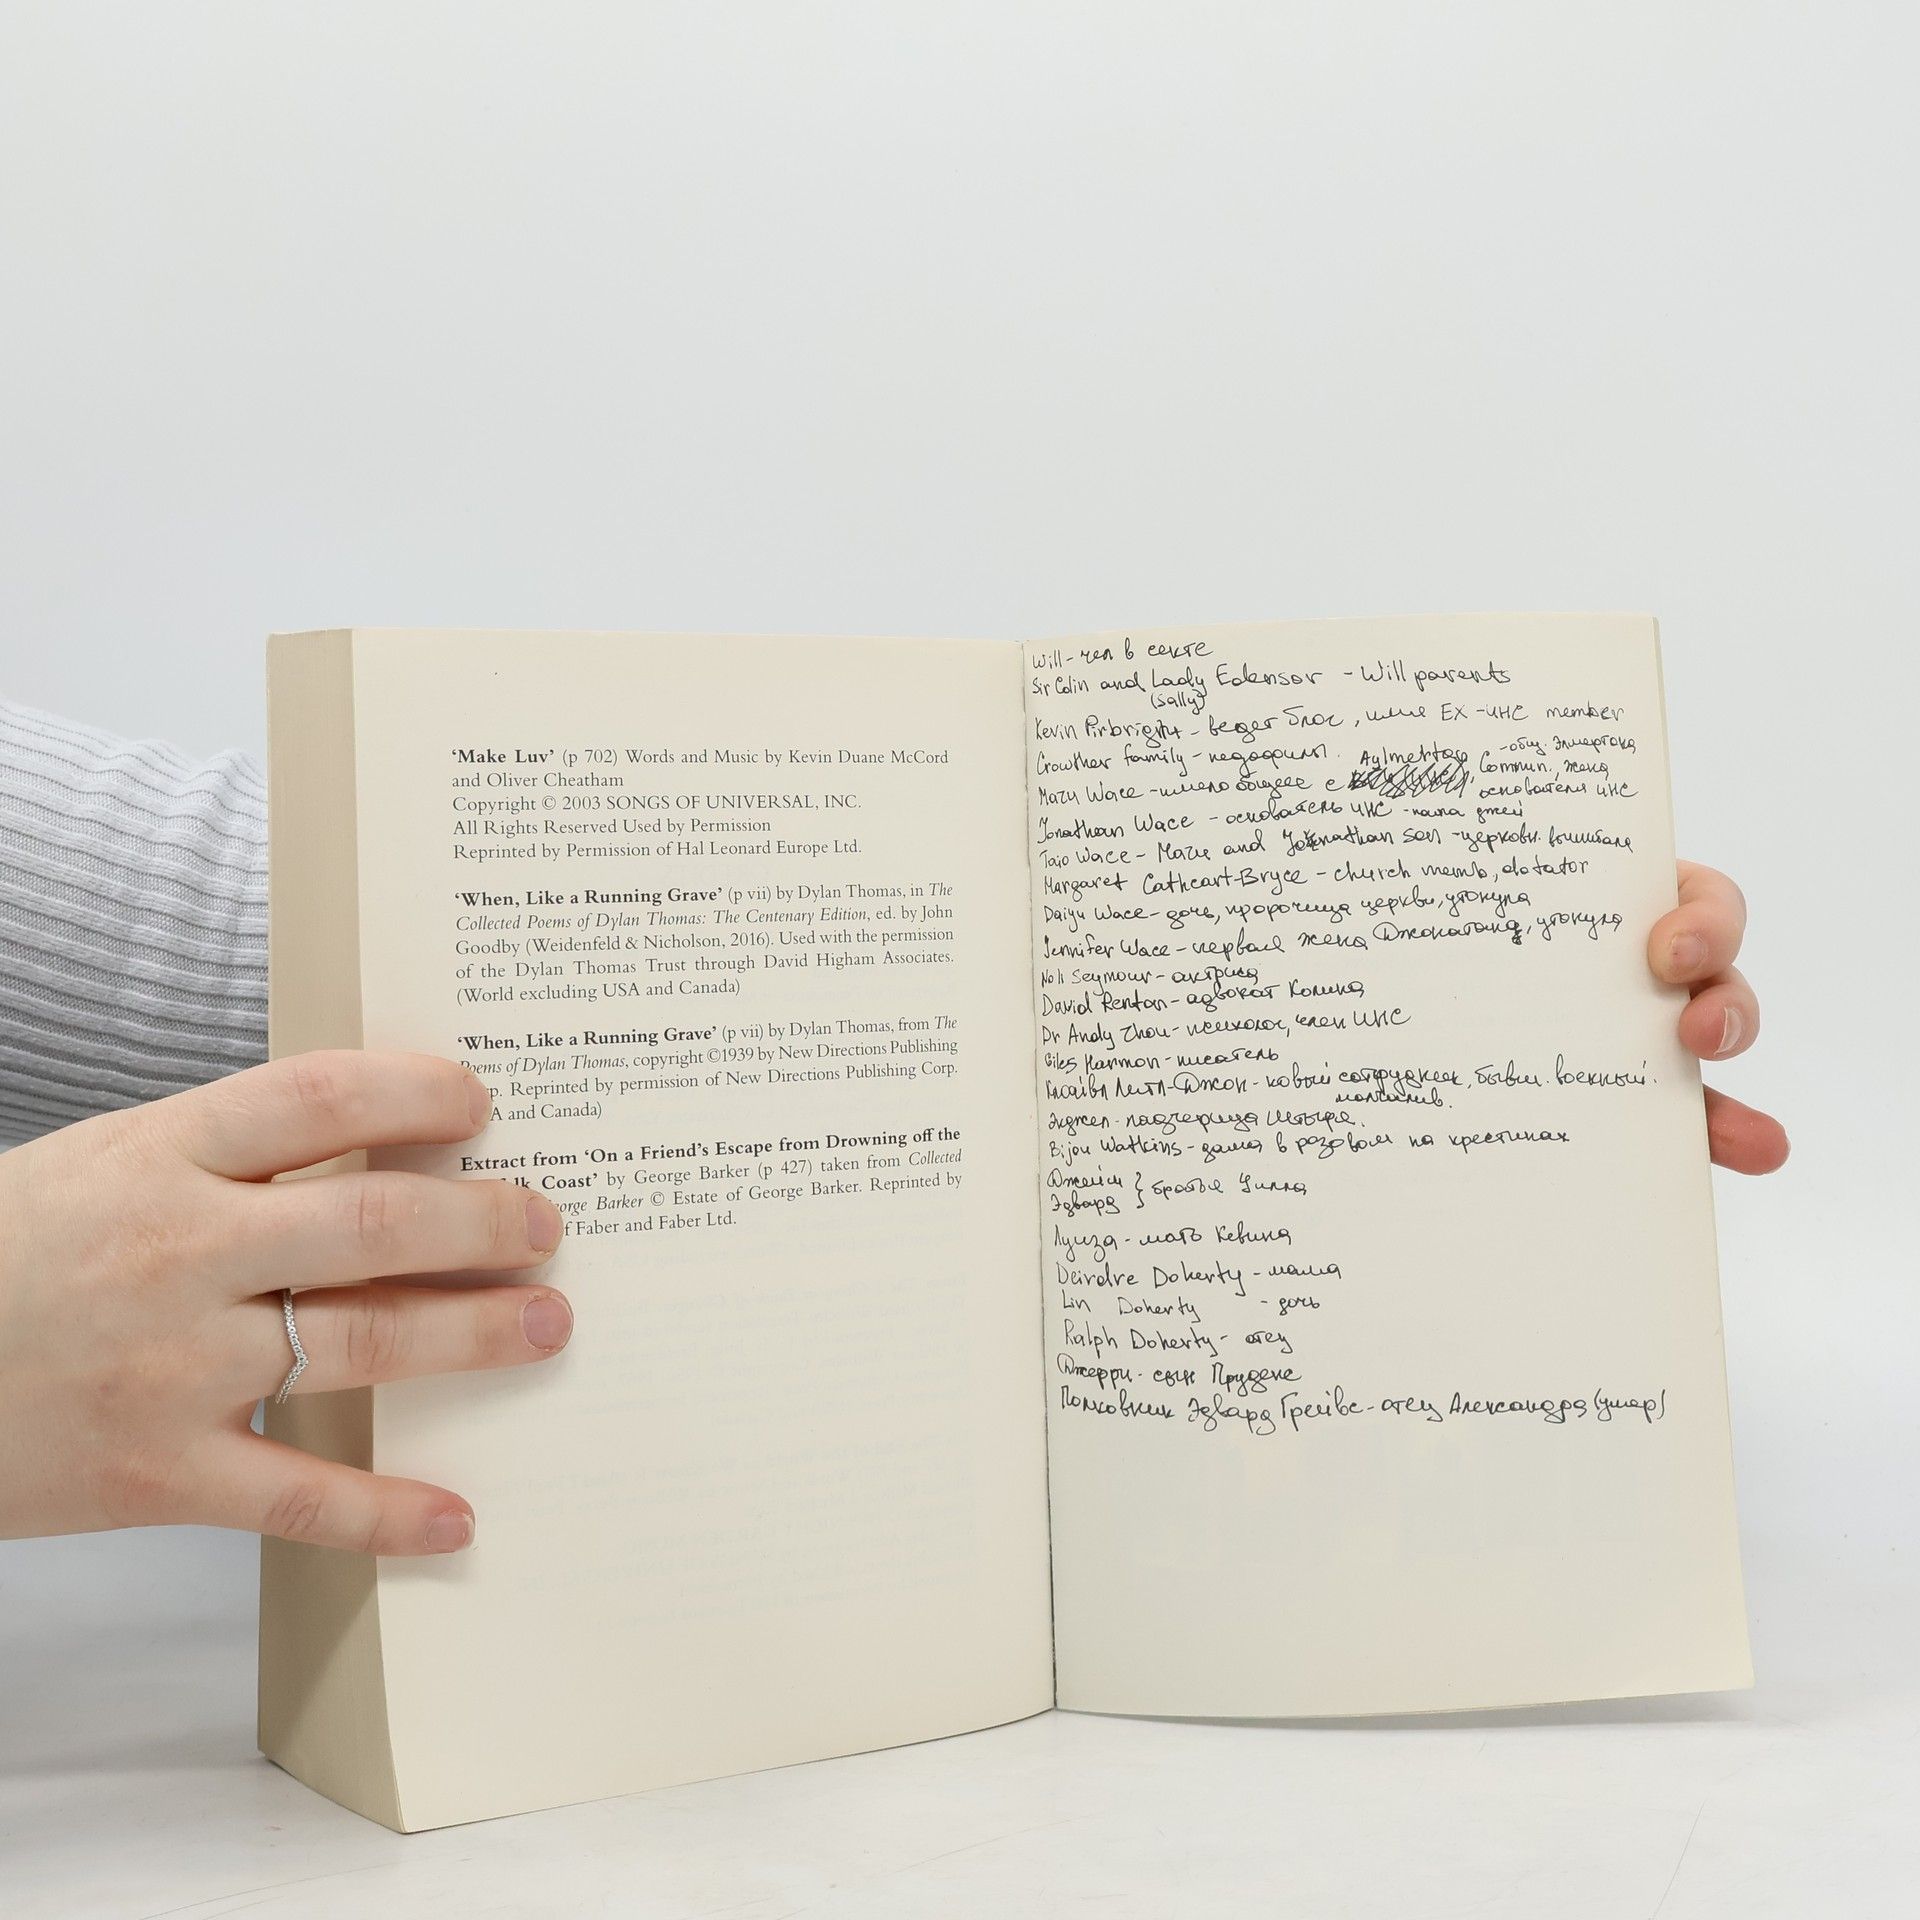 ‘Make Luv’ (p 702) Words and Music by Kevin Duane McCord
and Oliver Cheatham
Copyright © 2003 SONGS OF UNIVERSAL, INC.
All Rights Reserved Used by Permission
Reprinted by Permission of Hal Leonard Europe Ltd.
‘When, Like a Running Grave’ (p vii) by Dylan Thomas, in The
Collected Poems of Dylan Thomas: The Centenary Edition, ed. by John
Goodby (Weidenfeld & Nicholson, 2016). Used with the permission
of the Dylan Thomas Trust through David Higham Associates.
(World excluding USA and Canada)
‘When, Like a Running Grave’ (p vii) by Dylan Thomas, from The
Poems of Dylan Thomas, copyright ©1939 by New Directions Publishing
rp. Reprinted by permission of New Directions Publishing Corp.
A and Canada)
Extract from ‘On a Friend’s Escape from Drowning off the
lk Coast’ by George Barker (p 427) taken from Collected
orge Barker © Estate of George Barker. Reprinted by
f Faber and Faber Ltd.
Will - чел в секте
Sir Colin and Lady Edensor - Will parents
(Sally)
Kevin Pirbright - ведет блог, EX - член member
Crowther family - педофилы. Aylmerton - общ. Элмертона
Mazu Wace - имела общее с Commun., жена
основателя
Jonathan Wace - основатель - папа джей
Taio Wace - Mazu and Jonathan son - церковн. вышибала
Margaret Cathcart-Bryce - church memb, dotator
Daiyu Wace - дочь, пророчица церкви, утонула
Jennifer Wace - первая жена Джонатана, утонула
Noli Seymour - актриса
David Renton - адвокат Колина
Dr Andy Zhou - психолог, член
Giles Harmon - писатель
Клайв Литл-Джон - новый сотрудник, бывш. военный.
молчалив.
Эджел - падчерица Штыря.
Bijou Watkins - дама в розовом на крестинах
Джеймс
Эдвард } братья Уилла
Луиза - мать Кевина
Deirdre Doherty - мама
Lin Doherty - дочь
Ralph Doherty - отец
Джерри - сын Пруденс
Полковник Эдвард Грейвс - отец Александра (умер)